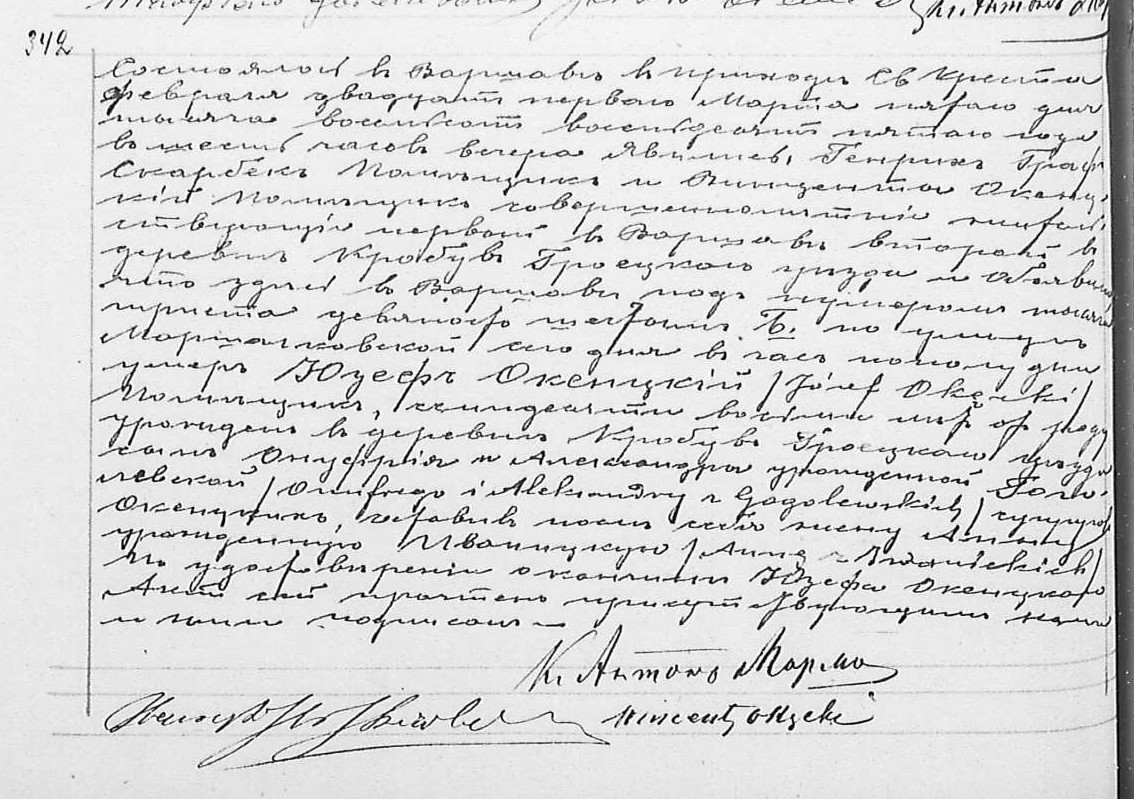 К. Антонъ
342
Состоялось в Варшавѣ в приходѣ Св Креста
Февраля двадцать первого Марта пятаго дня
тысяча восемьсотъ восемьдесятъ пятаго года
въ шесть часовъ вечера Явились, Генрихъ Графъ
Скарбекъ Помѣщикъ и Винцентій Окенц-
кій Помѣщикъ совершеннолѣтніе житель-
ствующіе первый в Варшавѣ второй в
деревнѣ Кробувъ Гроецкаго уѣзда и Объявили
что здѣсь в Варшавѣ подъ нумеромъ тысяча
триста девяносто шестымъ Б. по улицѣ
Маршалковской сего дня въ часъ пополудни
умеръ Юзефъ Окенцкій /Józef Okęcki/
Помѣщикъ, семидесяти восьми лѣтъ отъ роду
урожденъ в деревнѣ Кробувъ Гроецкаго уѣзда
сынъ Онуфрія и Александры урожденной Гого-
левской /Onufrego i Aleksandry z Gogolewskich/ супруговъ
Окенцкихъ, оставивъ послѣ себя жену Анну
урожденную Иваницкую /Annę z Iwanickich/
По удостовѣреніи о кончинѣ Юзефа Окенцкаго
Актъ сей прочтенъ присутствующимъ нами
и ними подписанъ
К. Антонъ
Wincenty Okęcki